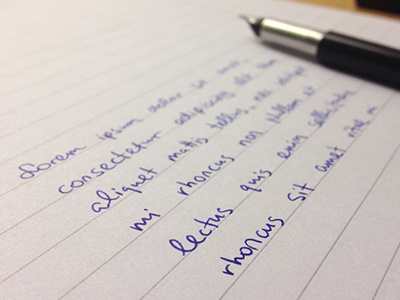 Lorem ipsum dolor sit
consectetur adipiscing elit
aliquet mattis tellus, nec
mi rhoncus non Nullam et
lectus quis enim sollicitudin
rhoncus sit amet vitae